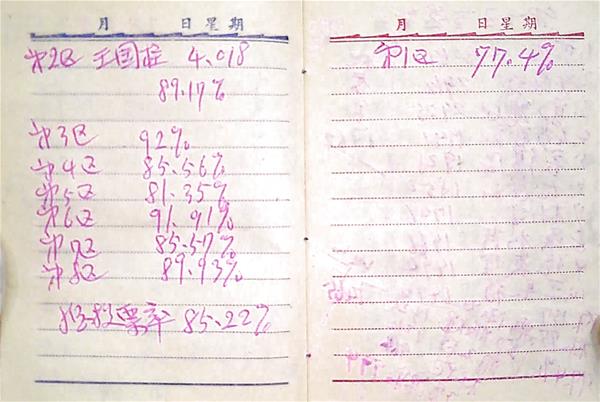 月 日星期
第2区 王国柱 4.018
89.17%
第3区 92%
第4区 85.56%
第5区 81.35%
第6区 91.91%
第7区 85.57%
第8区 89.93%
总投票率 85.22%
月 日星期
第1区 77.4%